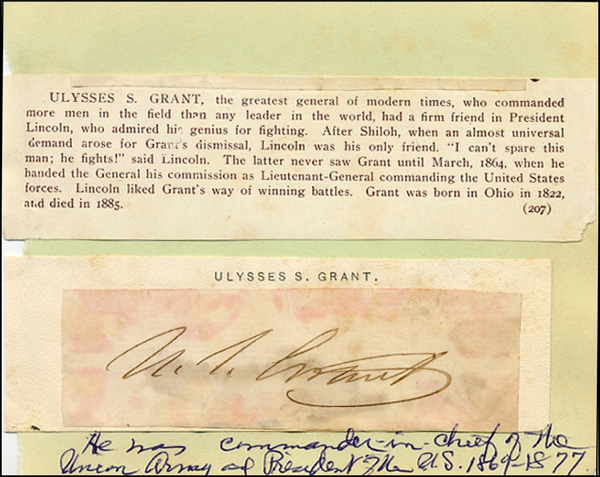 ULYSSES S. GRANT, the greatest general of modern times, who commanded
more men in the field than any leader in the world, had a firm friend in President
Lincoln, who admired his genius for fighting. After Shiloh, when an almost universal
demand arose for Grant's dismissal, Lincoln was his only friend. "I can't spare this
man; he fights!" said Lincoln. The latter never saw Grant until March, 1864, when he
handed the General his commission as Lieutenant-General commanding the United States
forces. Lincoln liked Grant's way of winning battles. Grant was born in Ohio in 1822,
and died in 1885. (207)
ULYSSES S. GRANT.
U. S. Grant
He was commander-in-chief of the
Union Army and President of the U.S. 1869-1877.